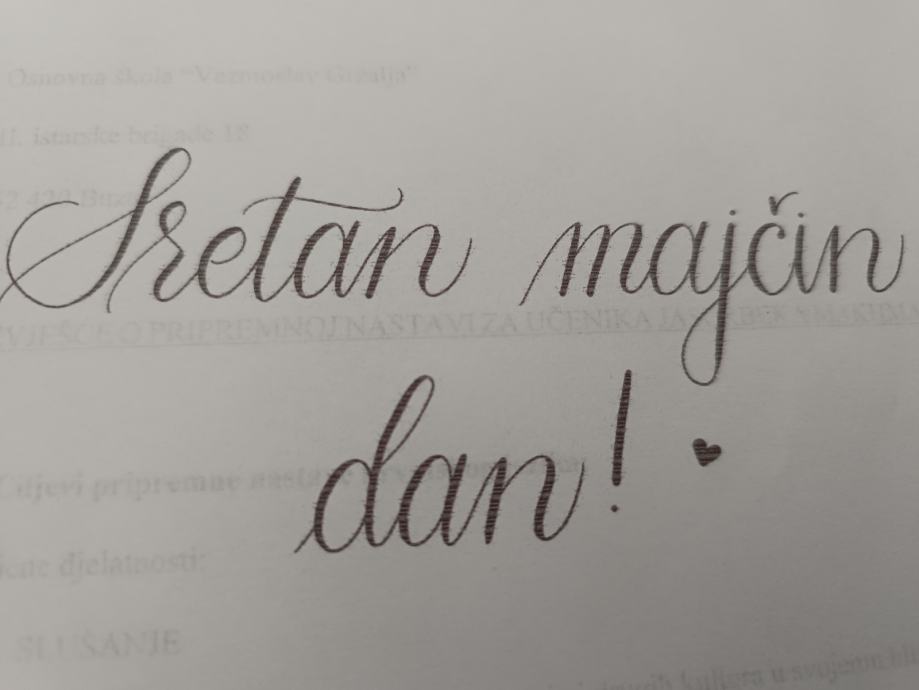 Osnovna škola "Vazmoslav Gržalja"
II. istarske brigade 18
52 420 Buzet
Sretan majčin
PRIPREMNOJ NASTAVI ZA UČENIKA
dan!
Ciljevi pripremne nastave
djelatnosti:
SLUŠANJE
drugih kultura u svojem